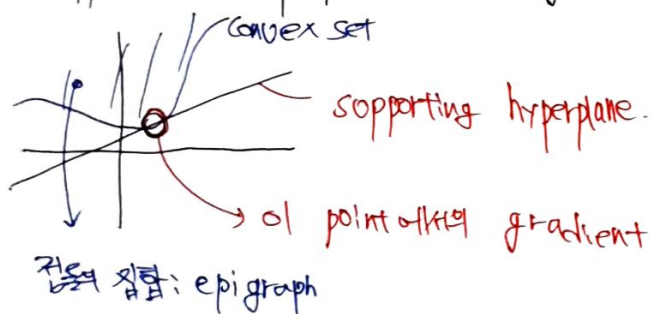 convex set
supporting hyperplane.
이 point에서의 gradient
점들의 집합: epigraph